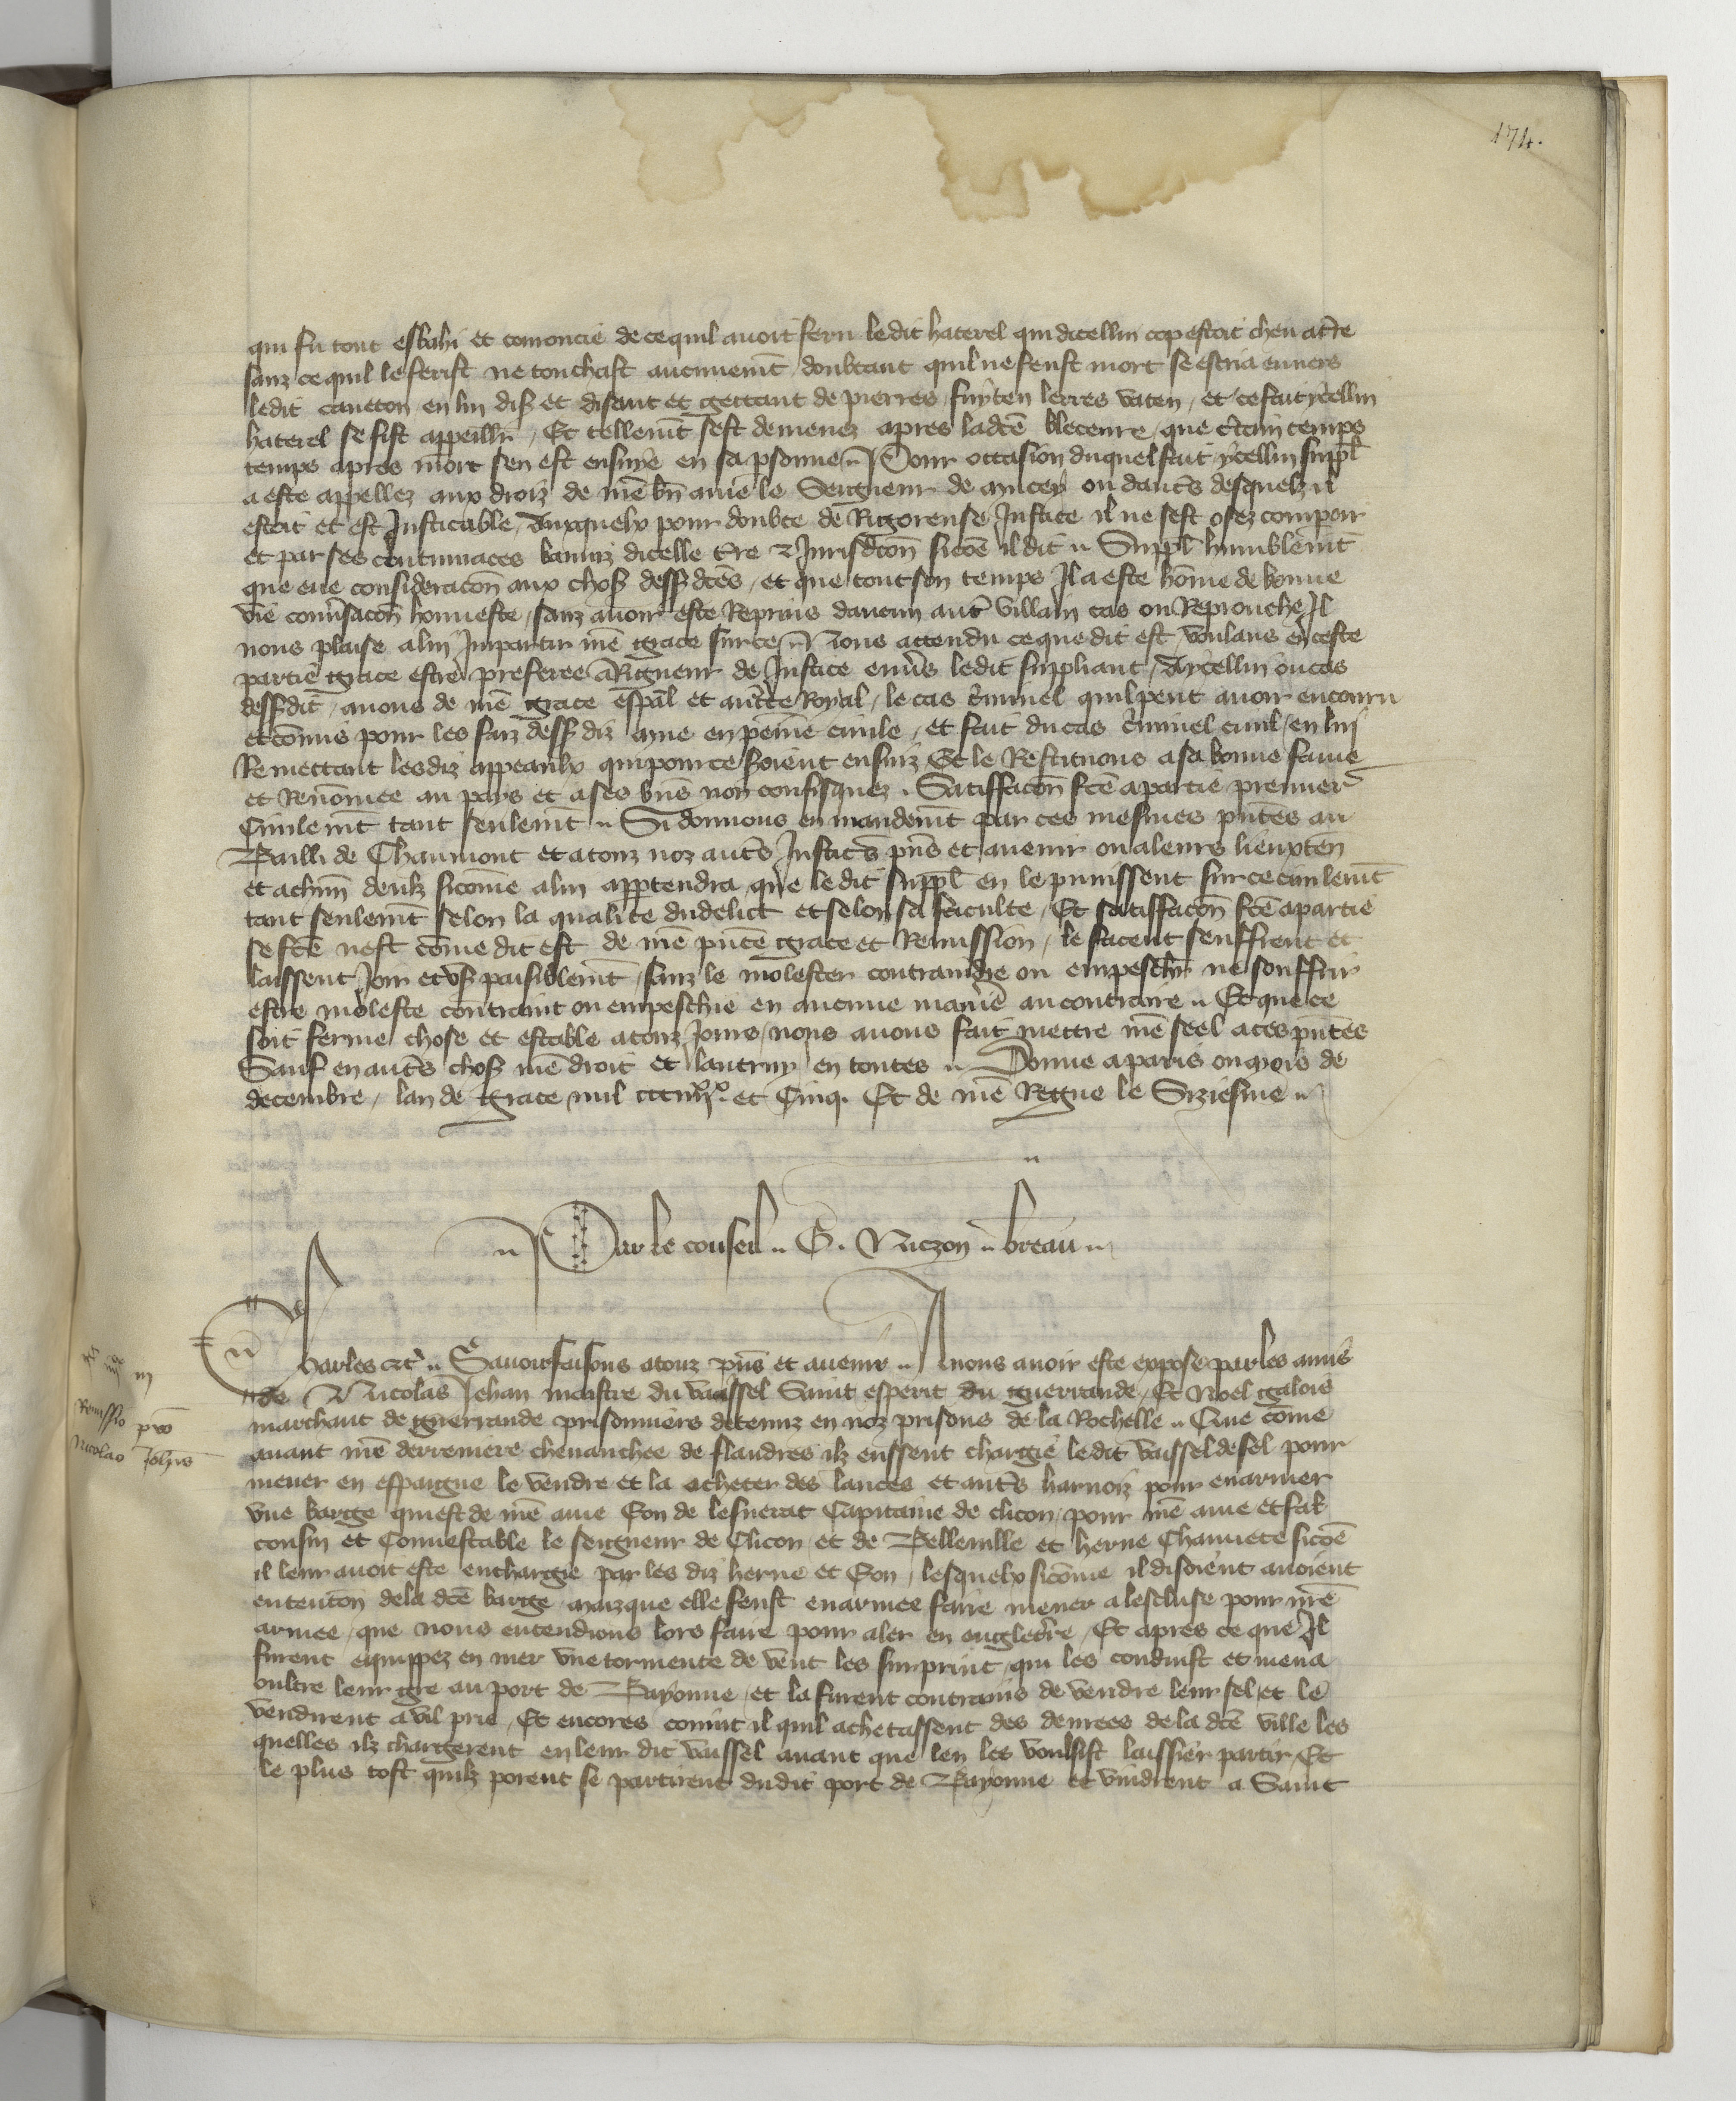 174.
qui fu tout esbahi et comoucie de ce quil avoit feru ledit haterel qui dicellui cop estoit cheu a tre
sanz ce quil le ferist ne touchast aucunemt doubtant quil ne feust mort se escria envers
ledit caveton en lui dis et disant et gettant de pierres fuyten lerres vaten, et ce fait ycellui
haterel se fist appeillr, Et tellemt sest demenez apres ladce bleceure, que ctain temps
temps apres mort sen est ensuye en sa psonne .. Pour occasion duquel fait ycellui suppl
a este appellez aux droiz de nre bn ame le Seigneur de ou dauts desquelz il
estoit et est Justicable, Auxquelx pour doubte de Rigoreuse Justice il ne sest osez compoir
et par ses contumaces banniz dicelle tre & Jurisdcon sicoe il dit .. Suppl humblemt
que eue consideracon aux chos dessdces, et que tout son temps Il a este home de bonne
vie convsacon honneste, sanz avoir este Reprins daucun autr villain cas ou Reprouche Il
nous plaise a lui Impartir nre grace sur ce .. Nous attendu ce que dit est voulans en ceste
partie grace estre preferee a Rigueur de Justice envs ledit suppliant, A ycellui ou cas
dessdit, avons de nre grace espal et auctte Royal, le cas criminel quil peut avoir encouru
et comis pour les faiz dess diz mue en peinne civile, et fait du cas criminel civil, en lui
Remettant lesdiz appeaulx qui pour ce soient ensuiz Et le Restituons a sa bonne fame
et Renomee au pais et a ses bns non confisquez . Satiffacon fce a partie premier
Civilemt tant seulemt .. Si donnons en mandemt par ces mesmes pntes au
Bailli de Chaumont et a touz noz auts Justics pns et avenir ou a leurs lieuxten
et a chun deulz sicomme a lui apptendra que ledit suppl en le punissent sur ce civilemt
tant seulemt selon la qualite du delict et selon sa faculte, Et satiffacon fce a partie
se fce nest come dit est de nre pnte grace et Remission, le facent seuffrent et
laissent Joir et us paisiblemt, sanz le molester contraindre ou empeschr ne souffrir
estre moleste contraint ou empeschie en aucune manie au contraire .. Et que ce
soit ferme chose et estable a touz Jours, nous avons fait mettre nre seel a ces pntes
Sauf en auts chos nre droit et lautruy en toutes .. Donne a paris ou mois de
decembre, lan de grace mil ccciiiixx et Cinq. Et de nre Regne le Siziesme ..
.. Par le conseil .. G. Niczon .. breau ..
Charles etc .. Savoir faisons a touz pns et avenir .. A nous avoir este expose par les amis
de Nicolas Jehan maistre du vaissel Saint esperit du guerrande, Et Noel galois
marchant de guerrande prisonniers detenuz en noz prisons de la Rochelle .. Que come
avant nre derreniere chevauchee de flandres ilz eussent chargie ledit vaissel de sel pour
mener en espaigne le vendre et la acheter des lances et auts harnoiz pour en armer
une barge qui est de nre ame Eon de lesnerac Capitaine de clicon, pour nre ame et feal
cousin et Connestable le seigneur de Clicon, et de Belleville et herve Chauvete sicoe
il leur avoit este enchargie par les diz herve et Eon, lesquelx sicomme il disoient avoient
ententon de la dce barge mais que elle feust en armee faire mener a lescluse pour nre
armee, que nous entendions lors faire pour aler en engletrre, Et apres ce que Il
furent equippez en mer une tormente de vent les surprint, qui les conduist et mena
oultre leur gre au port de Bayonne, et la furent contrains de vendre leur sel, et le
vendirent a vil pris, Et encores convint il quil achetassent des denrees de la dce ville les
quelles ilz chargerent en leur dit vaissel avant que len les voulsist laissier partir, Et
le plus tost quilz porent se partirent dudit port de Bayonne et vindrent a Saint
Remissio pro
Nicolao Johis